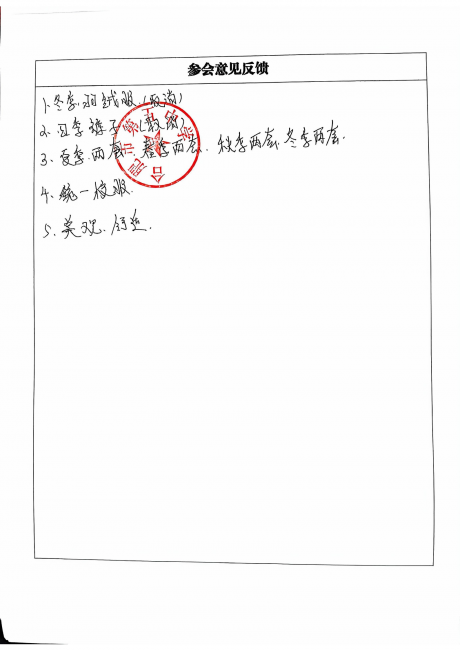 参会意见反馈
1、冬季羽绒服(取消)
2、四季裤子(取消)
3、夏季两套、春季两套、秋季两套、冬季两套.
4、统一校服.
5、美观、舒适.